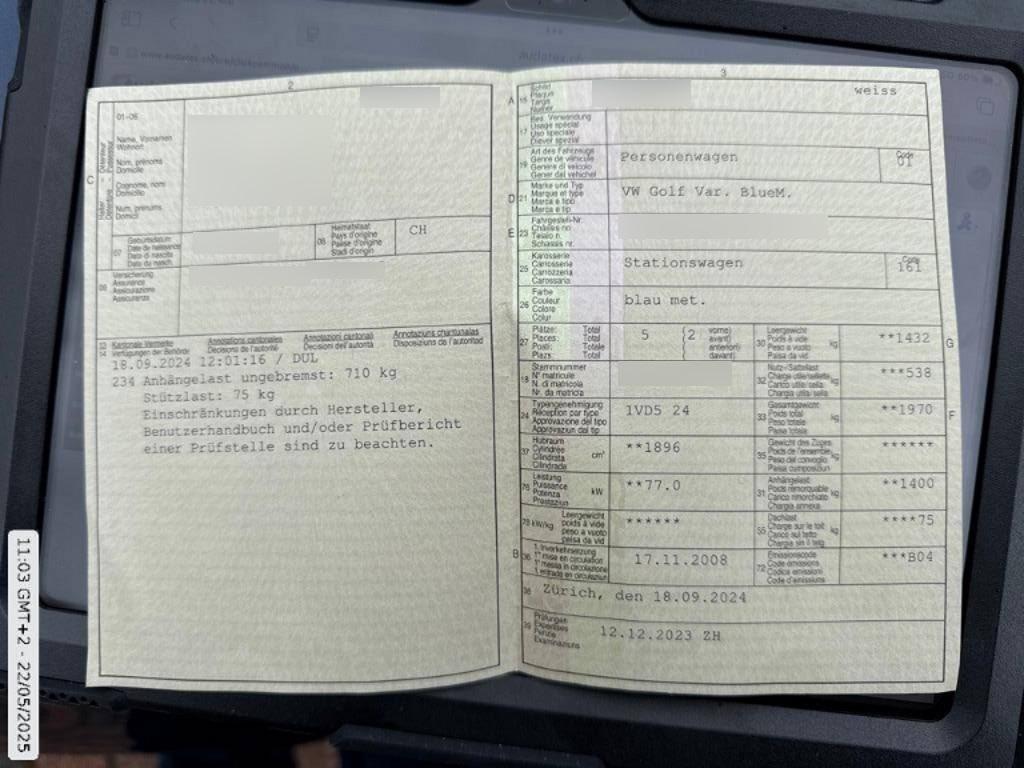 2
01-06
C
Name, Vornamen
Wohnort
Nom, prénoms
Domicile
Cognome, nomi
Domicilio
Num, prenums
Domicil
07
Geburtsdatum
Date de naissance
Data di nascita
Data da nasch.
08
Heimatstaat
Pays d'origine
Paese d'origine
Stadi d'origin
CH
09
Versicherung
Assurance
Assicurazione
Assicuranza
13
14
Kantonale Vermerke
Verfügungen der Behörde
Annotations cantonales
Décisions de l'autorité
Annotazioni cantonali
Decisioni dell'autorità
Annotaziuns chantunalas
Disposiziuns de l'autoritad
18.09.2024 12:01:16 / DUL
234 Anhängelast ungebremst: 710 kg
Stützlast: 75 kg
Einschränkungen durch Hersteller,
Benutzerhandbuch und/oder Prüfbericht
einer Prüfstelle sind zu beachten.
3
A
15
Schild
Plaque
Targa
Numer
weiss
17
Bes. Verwendung
Usage spécial
Uso speciale
Diever spezial
19
Art des Fahrzeugs
Genre de véhicule
Genere di veicolo
Gener dal vehichel
Personenwagen
Code
01
D
21
Marke und Typ
Marque et type
Marca e tipo
Marca e tip
VW Golf Var. BlueM.
E
23
Fahrgestell-Nr.
Châssis no
Telaio n.
Schassis nr.
25
Karosserie
Carrosserie
Carrozzeria
Carossaria
Stationswagen
Code
161
26
Farbe
Couleur
Colore
Colur
blau met.
27
Plätze: Total
Places: Total
Posti: Totale
Plazs: Total
5 (2
vorne)
avant)
anteriori)
davant)
30
Leergewicht
Poids à vide
Peso a vuoto
Paisa da vid
kg
**1432
G
18
Stammnummer
N° matricule
N. di matricola
Nr. da matricla
32
Nutz-/Sattellast
Charge utile/sellette
Carico utile/sella
Chargia utila/sella
kg
***538
24
Typengenehmigung
Réception par type
Approvazione del tipo
Approvaziun dal tip
1VD5 24
33
Gesamtgewicht
Poids total
Peso totale
Paisa totala
kg
**1970
F
37
Hubraum
Cylindrée
Cilindrata
Cilindrada
cm³
**1896
35
Gewicht des Zuges
Poids de l'ensemble
Peso del convoglio
Paisa cumposiziun
kg
******
76
Leistung
Puissance
Potenza
Prestaziun
kW
**77.0
31
Anhängelast
Poids remorquable
Carico rimorchiato
Chargia annexa
kg
**1400
78 kW/kg
Leergewicht
poids à vide
peso a vuoto
paisa da vid
******
55
Dachlast
Charge sur le toit
Carico sul tetto
Chargia sin il tetg
kg
****75
B
36
1. Inverkehrsetzung
1re mise en circulation
1a messa in circolazione
1. entrada en circulaziun
17.11.2008
72
Emissionscode
Code émissions
Codice emissioni
Code d'emissiuns
***B04
38
Zürich, den 18.09.2024
39
Prüfungen
Expertises
Perizie
Examinaziuns
12.12.2023 ZH
11:03 GMT+2 - 22/05/2025